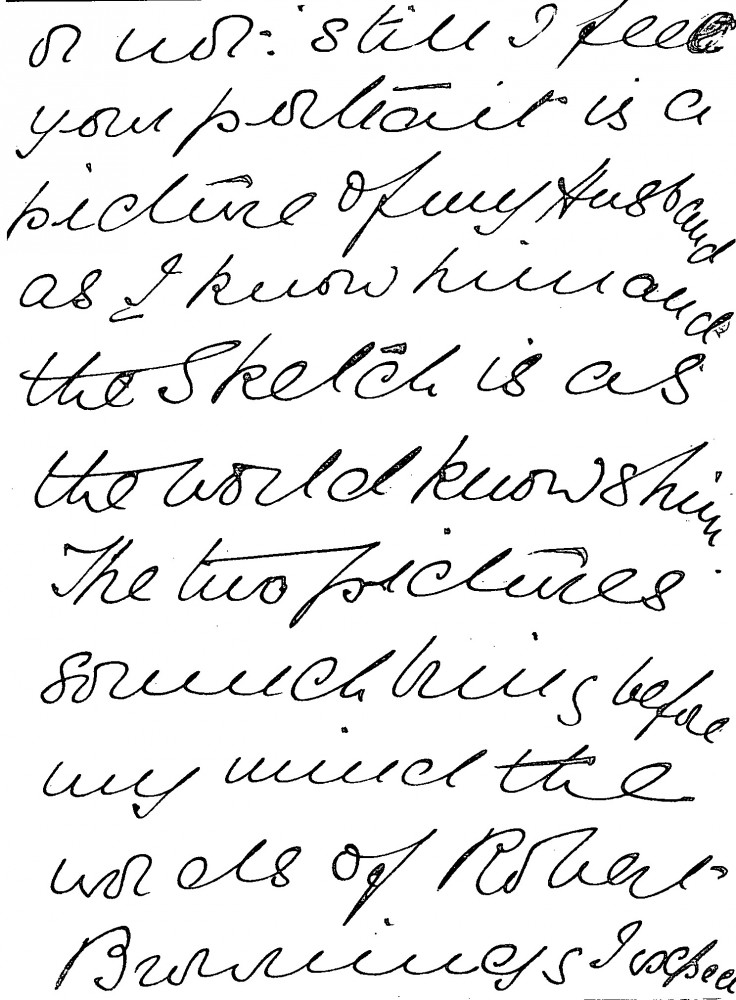 or not: still I feel
your portrait is a
picture of my Husband
as I know him and
the Sketch is as
the world knows him.
The two pictures
so much bring before
my mind the
words of Robert
Brownings I expect